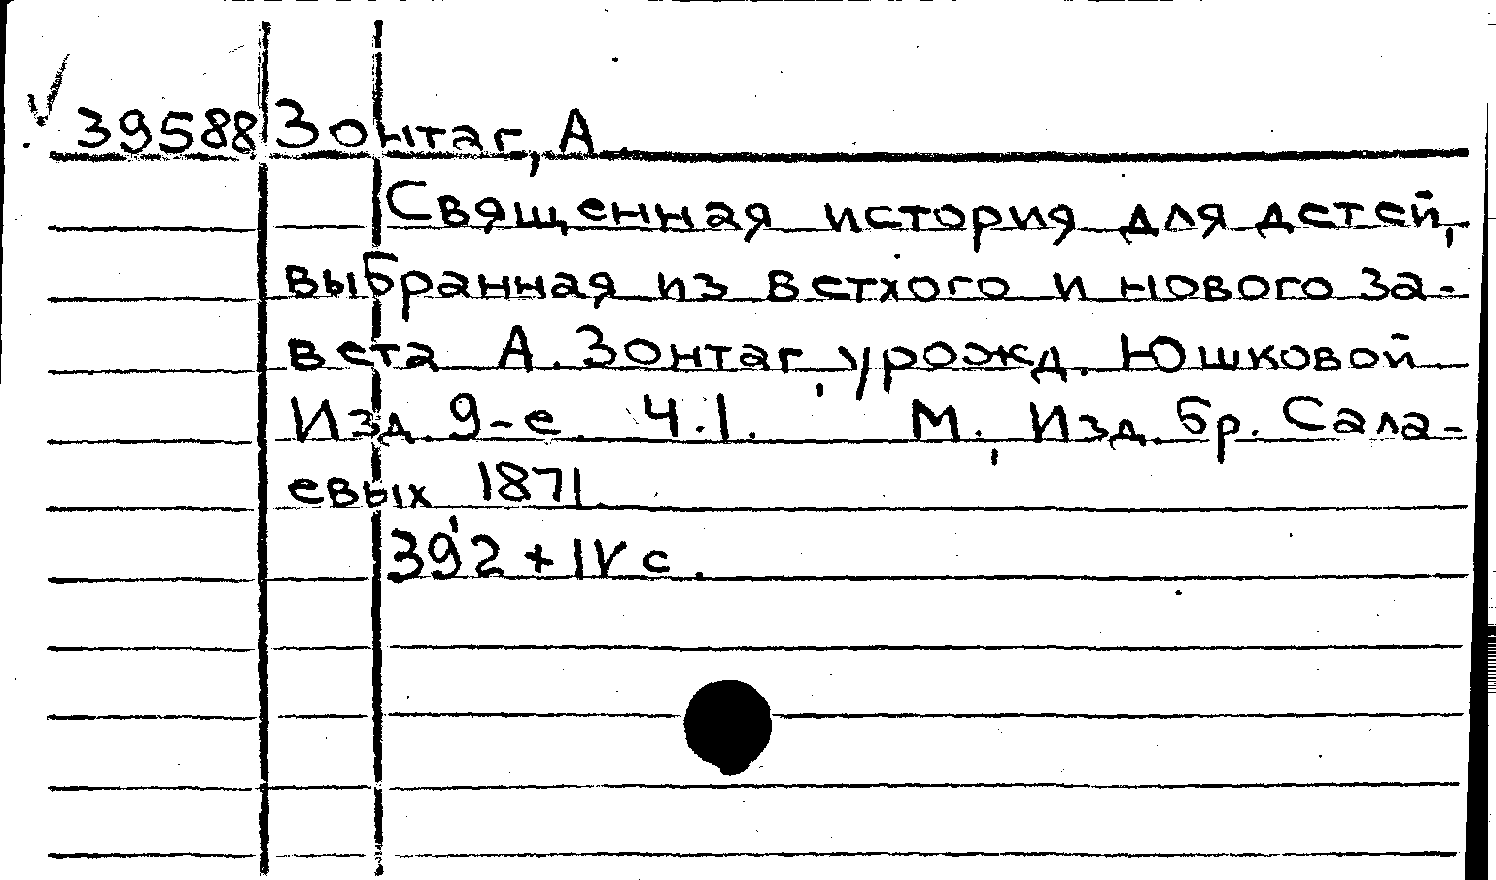 39588 Зонтаг, А.
Священная история для детей,
выбранная из Ветхого и нового за-
вета А. Зонтаг, урожд. Юшковой
Изд. 9-е. Ч.1. М., Изд. бр. Сала-
евых 1871.
392 + IV с.